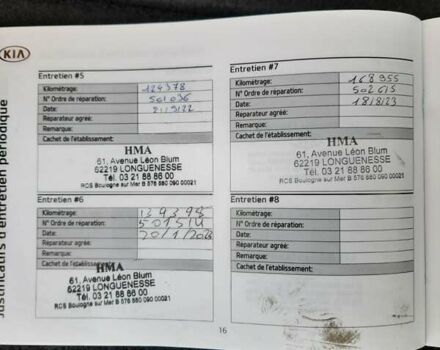 KIA
Justificatifs d'entretien périodique
Entretien #5
Kilométrage: 124378
N° Ordre de réparation: 501036
Date:
Réparateur agréé:
Remarque:
Cachet de l'établissement:
HMA
61, Avenue Léon Blum
62219 LONGUENESSE
Tél. 03 21 88 86 00
RCS Boulogne sur Mer B 576 680 090 00021
Entretien #6
Kilométrage: 139398
N° Ordre de réparation:
Date: 20/1/2023
Réparateur agréé:
Remarque:
Cachet de l'établissement:
HMA
61, Avenue Léon Blum
62219 LONGUENESSE
Tél. 03 21 88 86 00
RCS Boulogne sur Mer B 576 680 090 00021
Entretien #7
Kilométrage: 168955
N° Ordre de réparation: 502615
Date: 18/8/23
Réparateur agréé:
Remarque:
Cachet de l'établissement:
HMA
61, Avenue Léon Blum
62219 LONGUENESSE
Tél. 03 21 88 86 00
RCS Boulogne sur Mer B 576 680 090 00021
Entretien #8
Kilométrage:
N° Ordre de réparation:
Date:
Réparateur agréé:
Remarque:
Cachet de l'établissement:
16